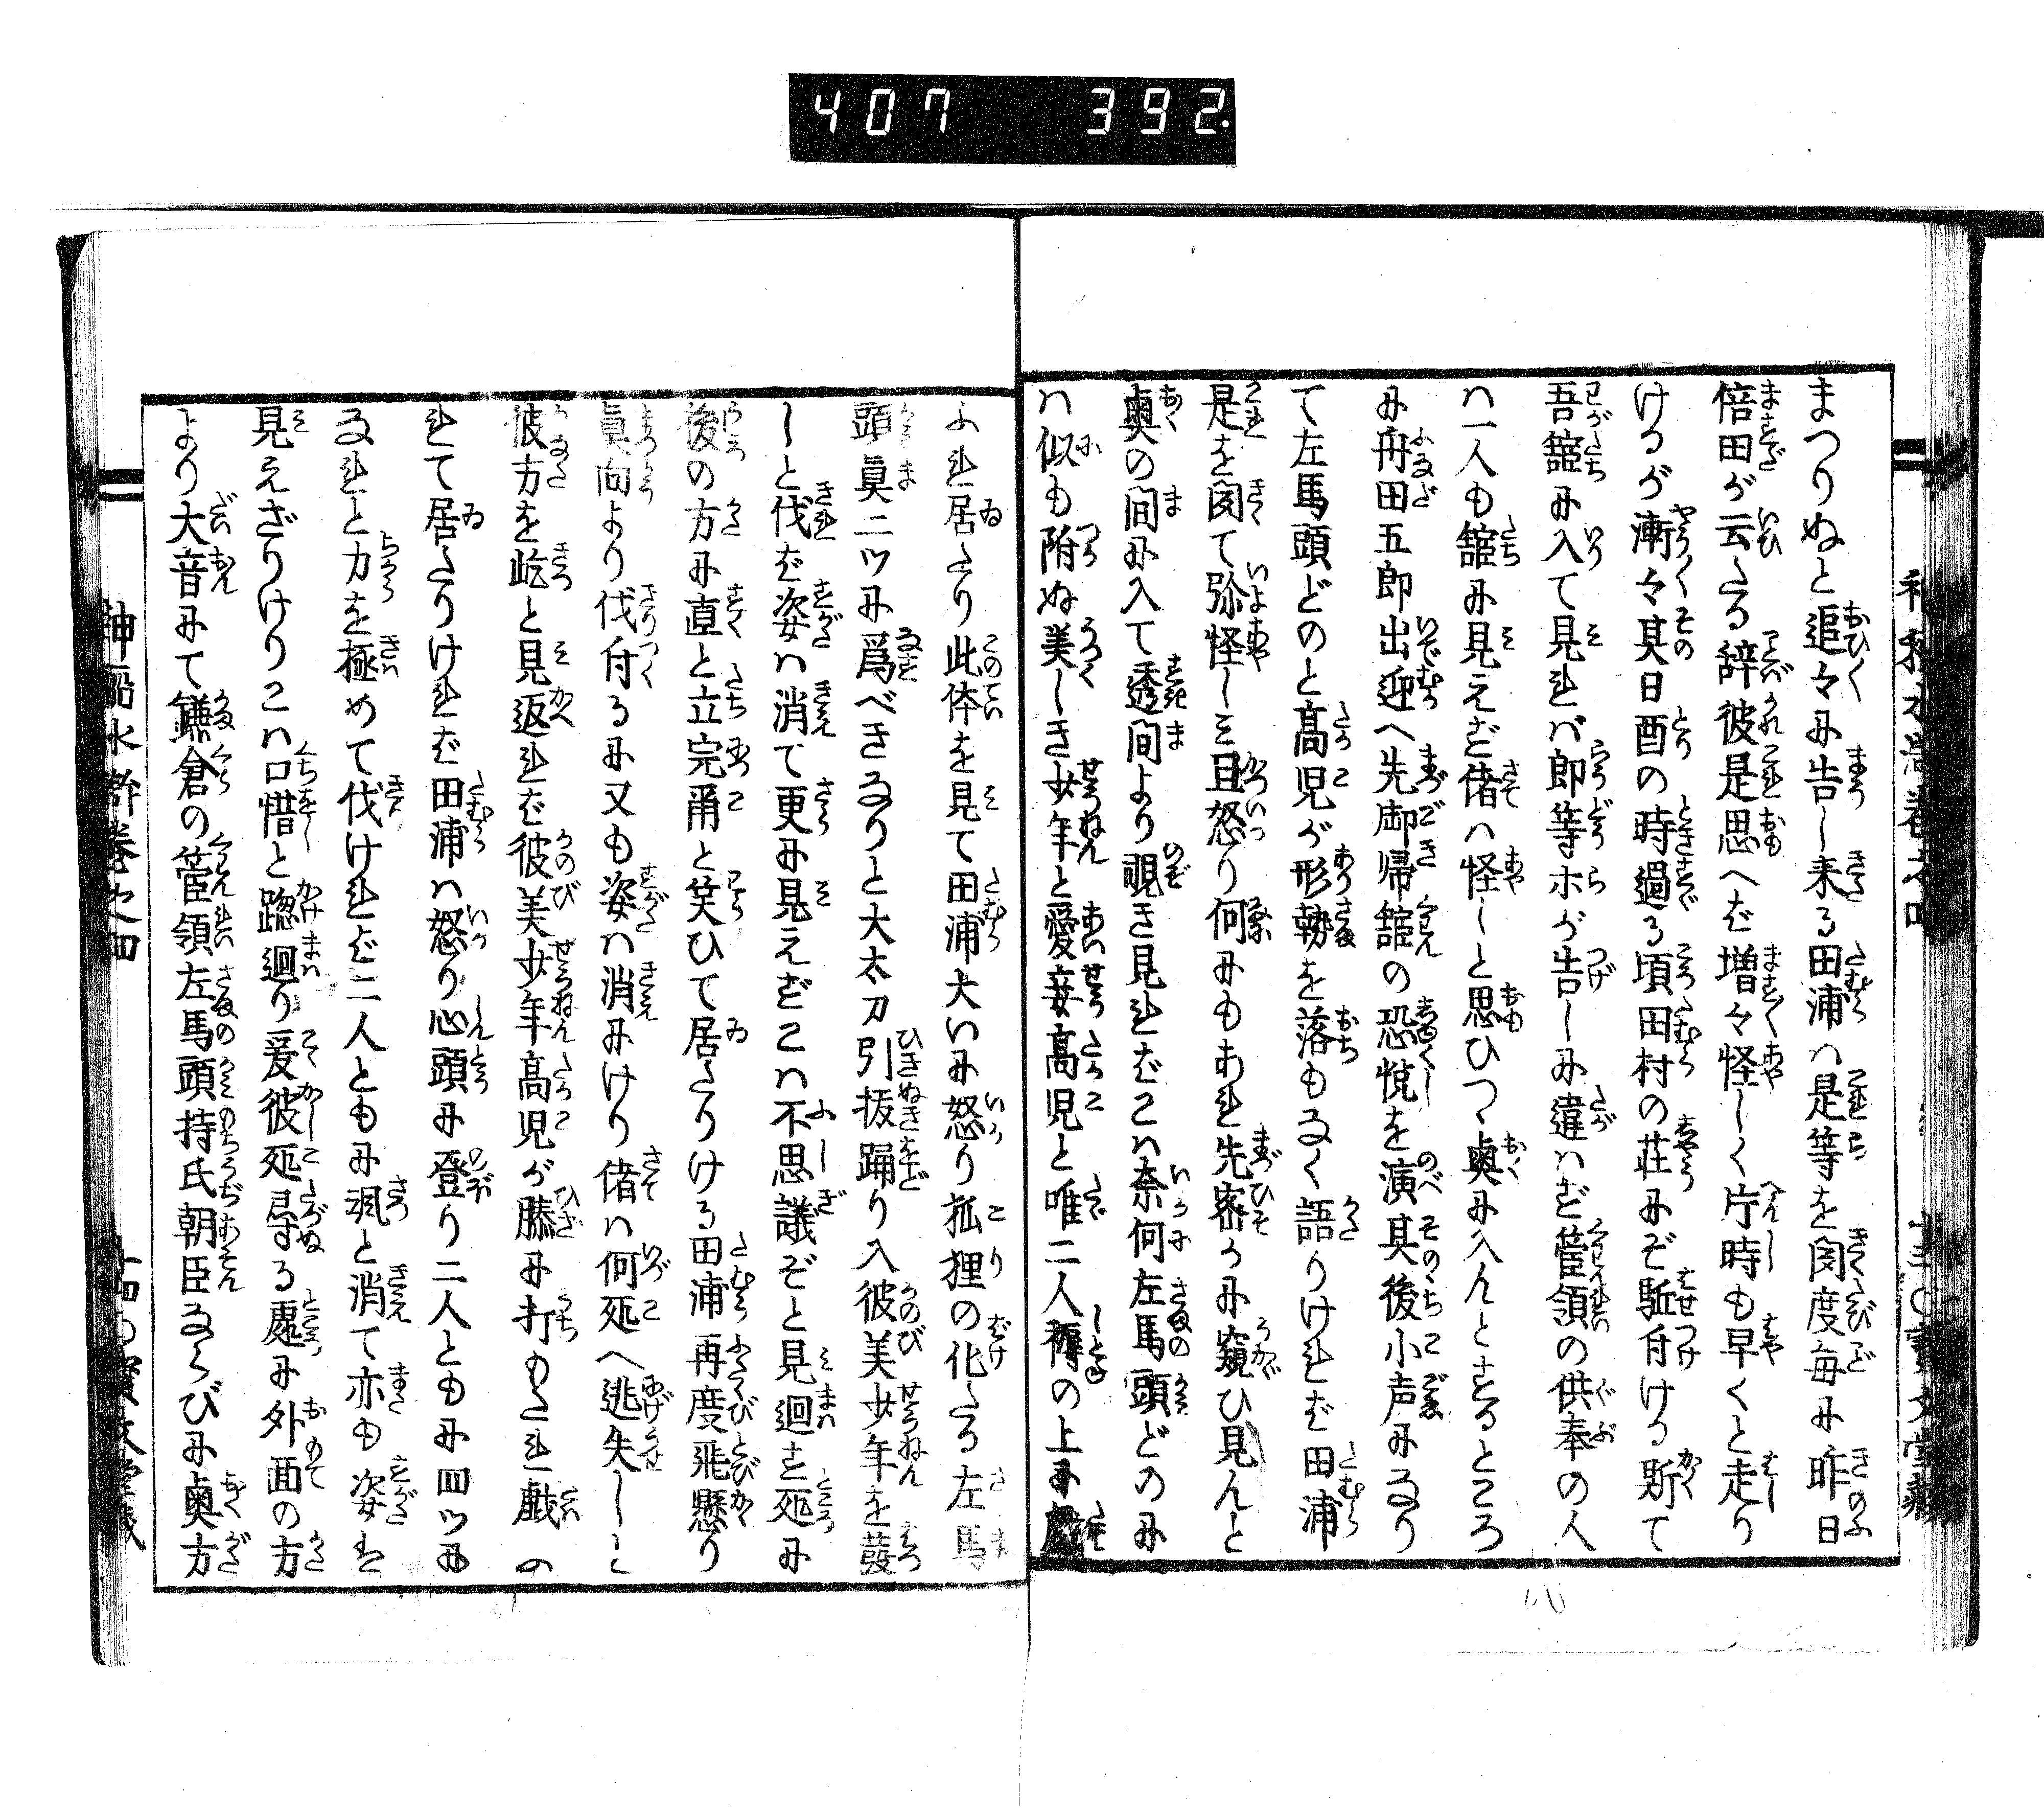 407 392.
まつりぬと追々み告し来る田浦ハ是等を聞度毎み昨日
倍田が云る辞彼是思へば増々怪しく片時も早くと走り
けるが漸々其日酉の時過る頃田村の荘みぞ駈付ける斯て
吾舘み入て見れバ郎等ホが告しみ違ハず菅領の供奉の人
ハ一人も舘み見えず偖ハ怪しと思ひつゝ奥み入んとするところ
み舟田五郎出迎へ先御帰舘の恐悦を演其後小声みなり
て左馬頭どのと髙児が形勢を落もなく語りけれバ田浦
是を聞て弥怪しミ且怒り何みもあれ先密かみ窺ひ見んと
奥の間み入て透間より覗き見れバこハ奈何左馬頭どのみ
ハ似も附ぬ美しき少年と愛妾髙児と唯二人褥の上み
ふれ居たり此体を見て田浦大いみ怒り狐狸の化たる左馬
頭眞二ツみ爲べきなりと大太刀引抜踊り入彼美少年を發
しと伐ば姿ハ消て更み見えずこハ不思議ぞと見廻す処み
後の方み直と立完爾と笑ひて居たりける田浦再度飛懸り
眞向より伐付るみ又も姿ハ消みけり偖ハ何処へ逃失しと
彼方を屹と見返れバ彼美少年髙児が膝み打もたれ戯の
れて居たりけれバ田浦ハ怒り心頭み登り二人ともみ四ツみ
なれと力を極めて伐けれど二人ともみ颯と消て亦も姿は
見えざりけりこハ口惜と踏廻り爰彼処尋る處み外面の方
より大音みて鎌倉の菅領左馬頭持氏朝臣ならびみ奥方
神稲水滸巻之四